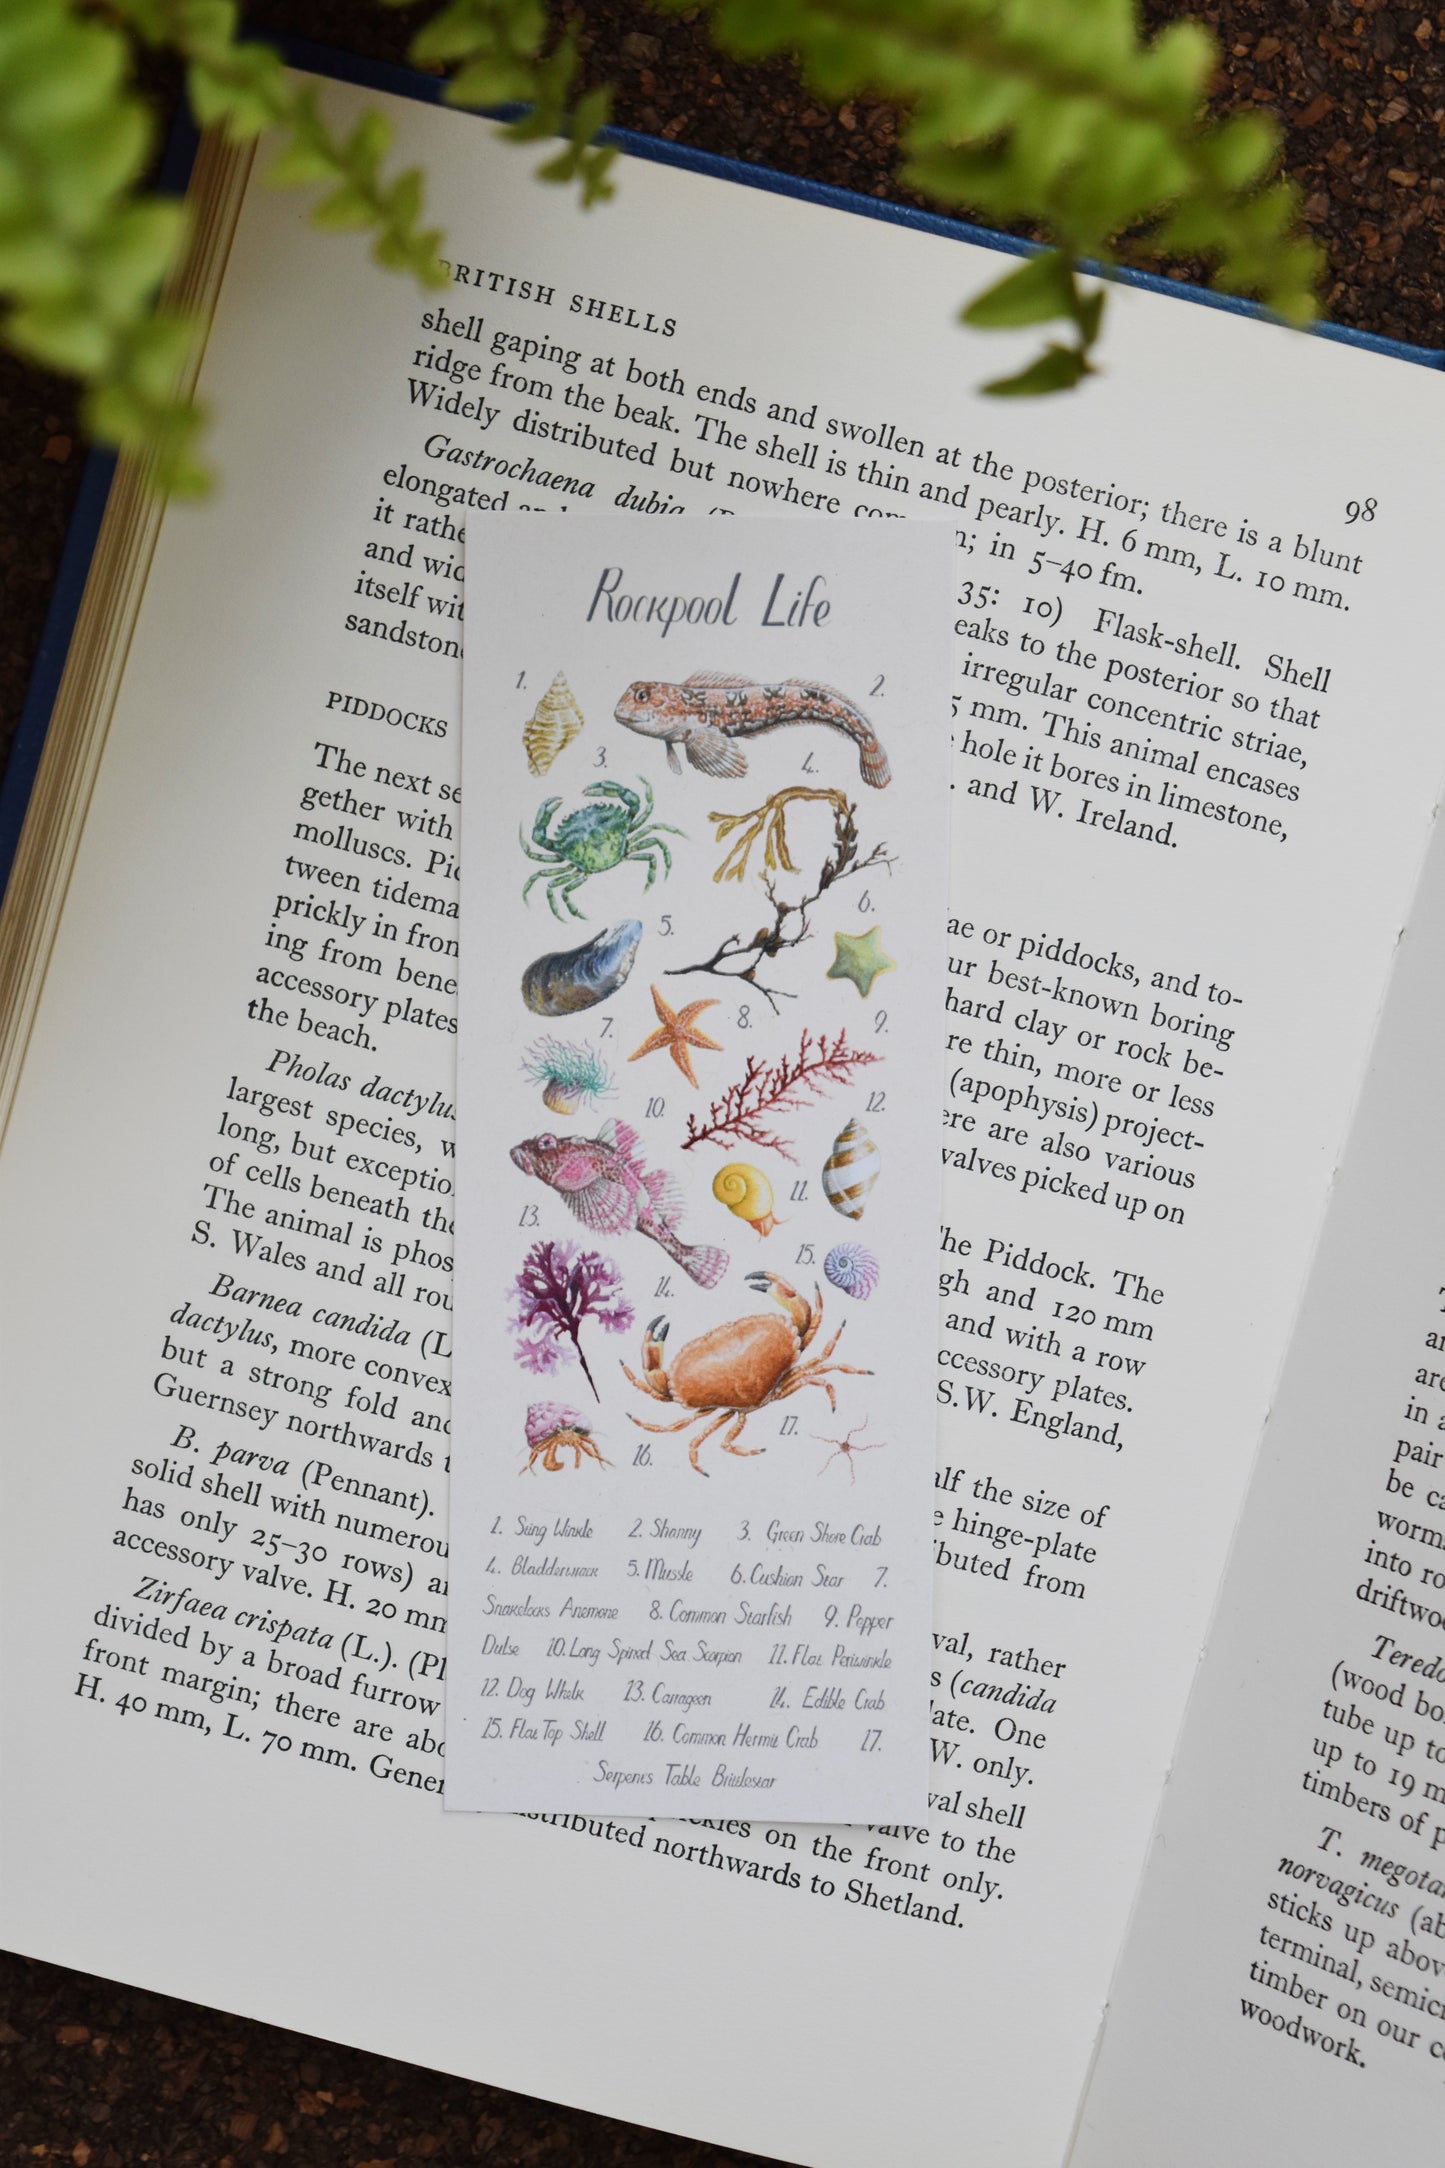 BRITISH SHELLS
98
shell gaping at both ends and swollen at the posterior; there is a blunt
ridge from the beak. The shell is thin and pearly. H. 6 mm, L. 10 mm.
Widely distributed but nowhere com n; in 5–40 fm.
Gastrochaena dubia 35: 10) Flask-shell. Shell
elongated eaks to the posterior so that
it rathe irregular concentric striae,
and wid 5 mm. This animal encases
itself wit hole it bores in limestone,
sandston . and W. Ireland.
PIDDOCKS
The next se ae or piddocks, and to-
gether with ur best-known boring
molluscs. Pid hard clay or rock be-
tween tidema re thin, more or less
prickly in fron (apophysis) project-
ing from bene ere are also various
accessory plates valves picked up on
the beach.
Pholas dactylus The Piddock. The
largest species, w gh and 120 mm
long, but exceptio and with a row
of cells beneath the ccessory plates.
The animal is phos S.W. England,
S. Wales and all rou
Barnea candida (L alf the size of
dactylus, more convex e hinge-plate
but a strong fold and ibuted from
Guernsey northwards t
B. parva (Pennant). val, rather
solid shell with numerou s (candida
has only 25–30 rows) a late. One
accessory valve. H. 20 mm W. only.
Zirfaea crispata (L.). (Pl val shell
divided by a broad furrow valve to the
front margin; there are abo ckles on the front only.
H. 40 mm, L. 70 mm. Gener stributed northwards to Shetland.
Rockpool Life
1.
2.
3.
4.
5.
6.
7.
8.
9.
10.
12.
11.
13.
15.
14.
17.
16.
1. Sting Winkle 2. Shanny 3. Green Shore Crab
4. Bladderwrack 5. Mussle 6. Cushion Star 7.
Snakelocks Anemone 8. Common Starfish 9. Pepper
Dulse 10. Long Spined Sea Scorpion 11. Flat Periwinkle
12. Dog Whelk 13. Carrageen 14. Edible Crab
15. Flat Top Shell 16. Common Hermit Crab 17.
Serpent's Table Brittlestar
in a
pair
be ca
worm
into ro
driftwo
Teredo
(wood bo
tube up to
up to 19 m
timbers of p
T. megota
norvagicus (ab
sticks up abov
terminal, semici
timber on our c
woodwork.